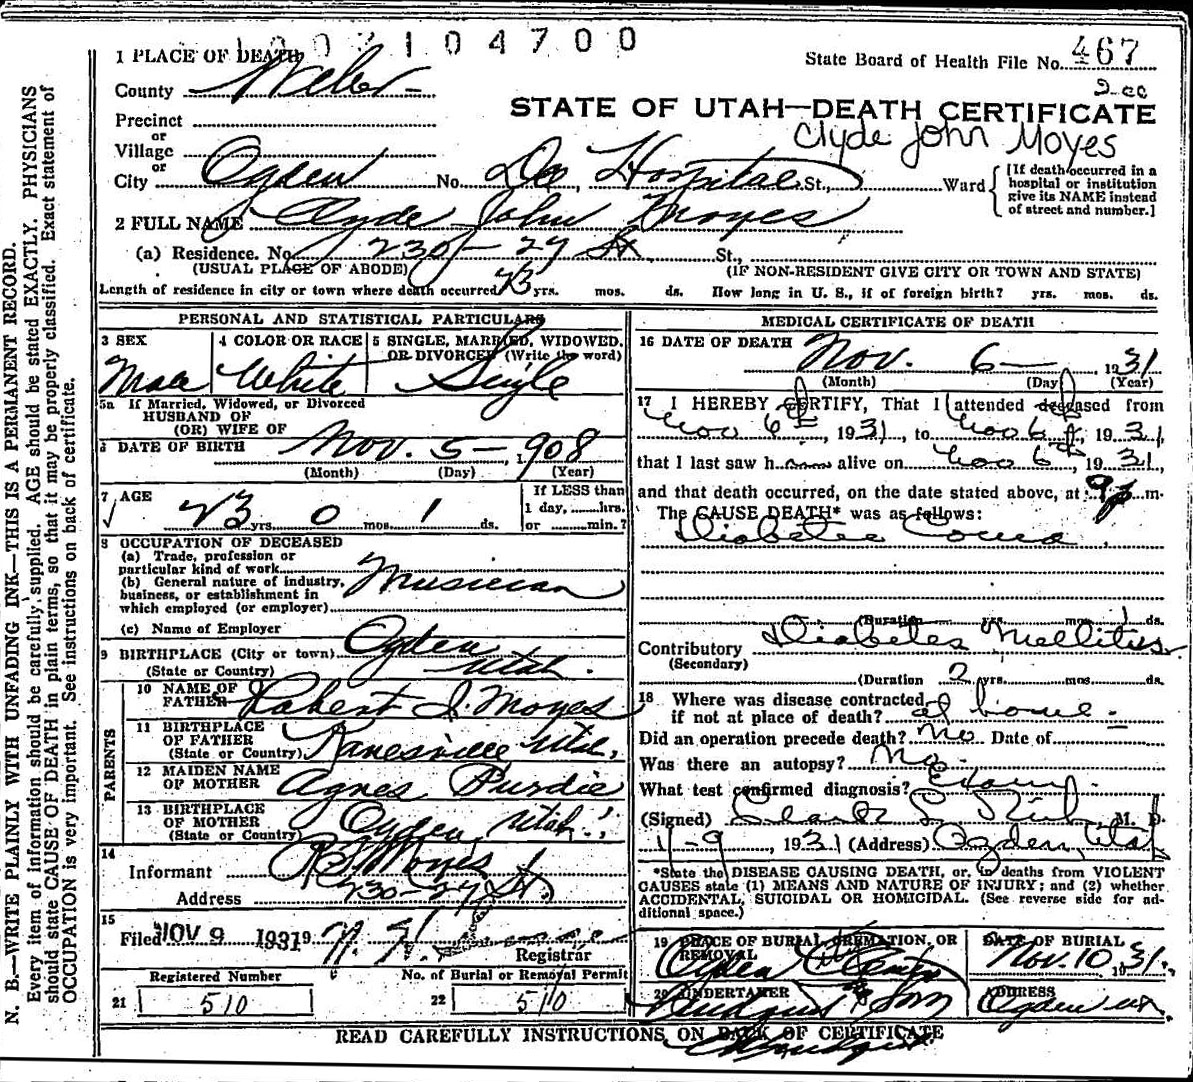 1003104700
State Board of Health File No. 467
2-cc
1 PLACE OF DEATH
County Weber
STATE OF UTAH—DEATH CERTIFICATE
Clyde John Moyes
Precinct
or
Village
or
City Ogden No. Dee Hospital St., Ward
[If death occurred in a
hospital or institution
give its NAME instead
of street and number.]
2 FULL NAME Clyde John Moyes
(a) Residence. No. 230 - 27 St. St.,
(USUAL PLACE OF ABODE) (IF NON-RESIDENT GIVE CITY OR TOWN AND STATE)
Length of residence in city or town where death occurred 23 yrs. mos. ds. How long in U. S., if of foreign birth? yrs. mos. ds.
PERSONAL AND STATISTICAL PARTICULARS
3 SEX
Male
4 COLOR OR RACE
White
5 SINGLE, MARRIED, WIDOWED,
OR DIVORCED (Write the word)
Single
5a If Married, Widowed, or Divorced
HUSBAND OF
(OR) WIFE OF
6 DATE OF BIRTH Nov. 5 - 1908
(Month) (Day) (Year)
7 AGE
23 yrs. 0 mos. 1 ds.
If LESS than
1 day, ......hrs.
or ......min.?
8 OCCUPATION OF DECEASED
(a) Trade, profession or
particular kind of work Musician
(b) General nature of industry,
business, or establishment in
which employed (or employer)
(c) Name of Employer
9 BIRTHPLACE (City or town) Ogden
(State or Country) Utah.
PARENTS
10 NAME OF
FATHER Robert I. Moyes
11 BIRTHPLACE
OF FATHER
(State or Country) Kanesville Utah,
12 MAIDEN NAME
OF MOTHER Agnes Purdie
13 BIRTHPLACE
OF MOTHER
(State or Country) Ogden, Utah.
14
Informant Moyes
Address 230-27 St.
15
Filed NOV 9 1931 19
Registrar
Registered Number
21 510
No. of Burial or Removal Permit
22 510
MEDICAL CERTIFICATE OF DEATH
16 DATE OF DEATH Nov. 6 - 1931
(Month) (Day) (Year)
17 I HEREBY CERTIFY, That I attended deceased from
Nov 6th, 1931, to Nov 6th, 1931,
that I last saw him alive on Nov 6th, 1931,
and that death occurred, on the date stated above, at 9 p m.
The CAUSE DEATH* was as follows:
Diabetic Coma
(Duration yrs. mos. 1 ds.
Contributory Diabetes Mellitus
(Secondary)
(Duration 2 yrs. mos. ds.
18 Where was disease contracted
if not at place of death? at home -
Did an operation precede death? no Date of
Was there an autopsy? No.
What test confirmed diagnosis?
(Signed) M. D.
11-9, 1931 (Address) Ogden, Utah
*State the DISEASE CAUSING DEATH, or, in deaths from VIOLENT
CAUSES state (1) MEANS AND NATURE OF INJURY; and (2) whether
ACCIDENTAL, SUICIDAL OR HOMICIDAL. (See reverse side for ad-
ditional space.)
19 PLACE OF BURIAL, CREMATION, OR
REMOVAL
Ogden City
DATE OF BURIAL
Nov. 10 1931.
20 UNDERTAKER
& Son
ADDRESS
Ogden ut.
READ CAREFULLY INSTRUCTIONS ON BACK OF CERTIFICATE
N. B.—WRITE PLAINLY WITH UNFADING INK—THIS IS A PERMANENT RECORD.
Every item of information should be carefully supplied. AGE should be stated EXACTLY. PHYSICIANS
should state CAUSE OF DEATH in plain terms, so that it may be properly classified. Exact statement of
OCCUPATION is very important. See instructions on back of certificate.